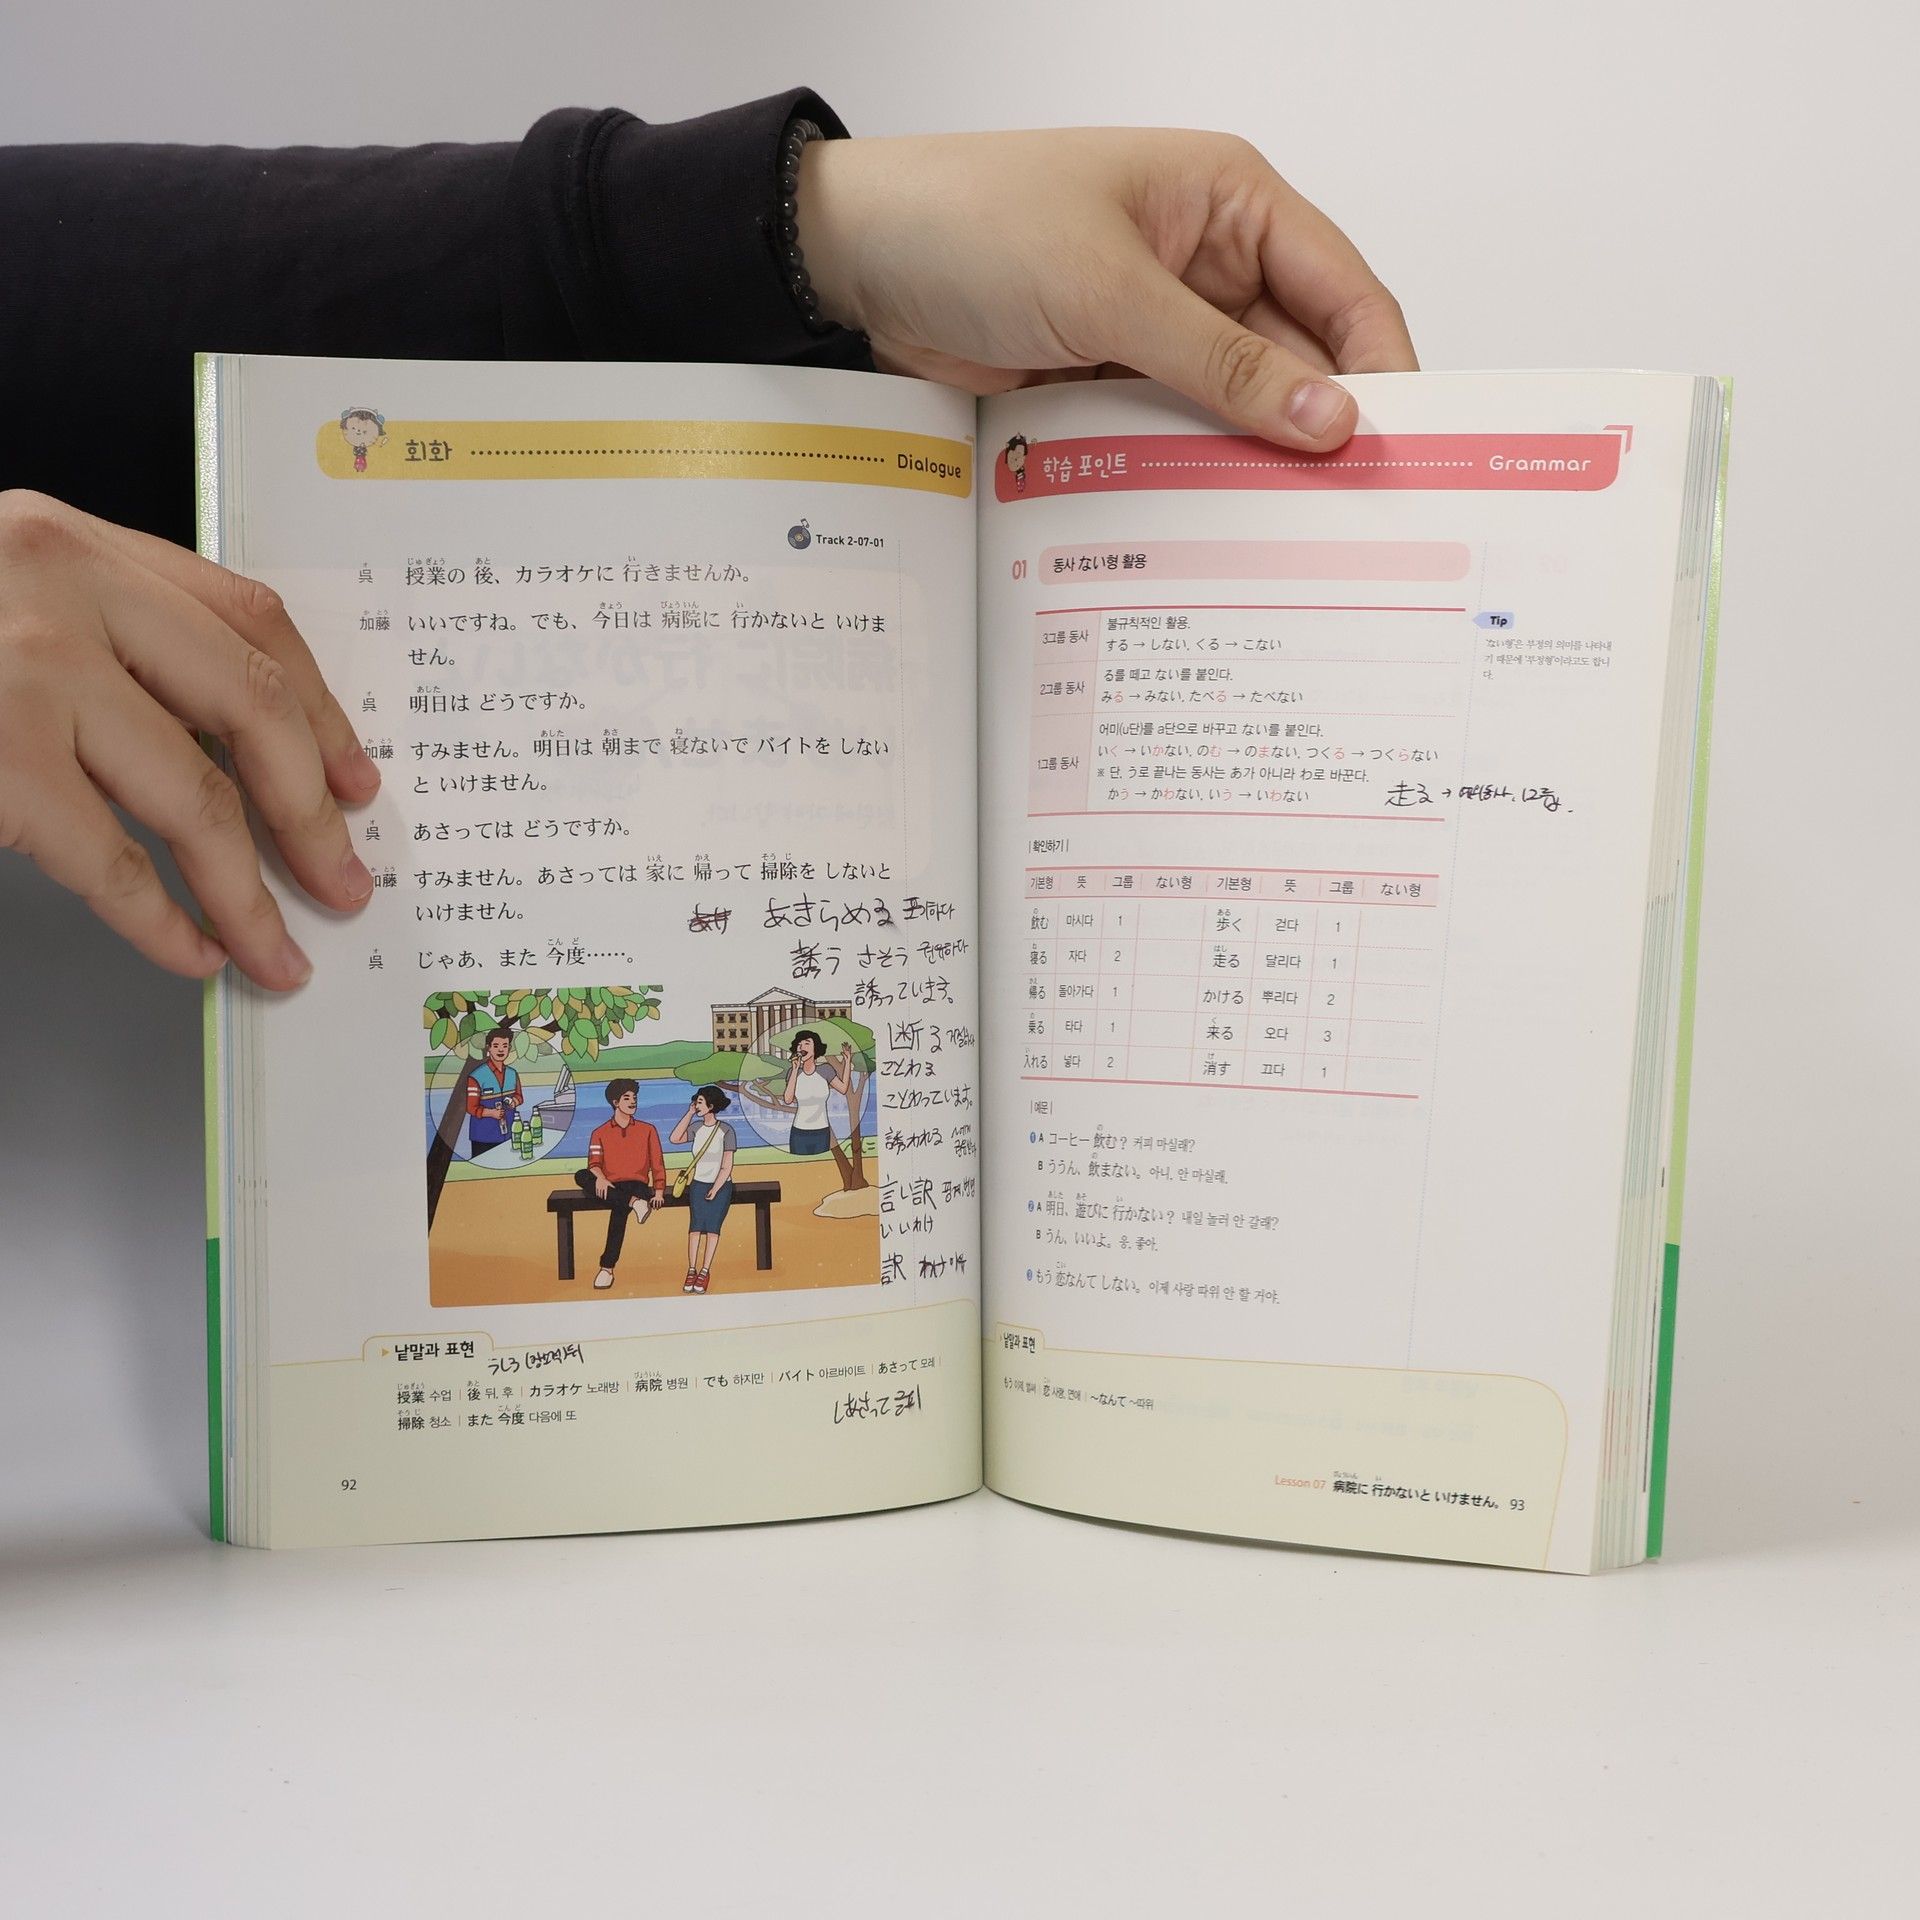 회화 Dialogue
Track 2-07-01
呉 授業の 後、カラオケに 行きませんか。
加藤 いいですね。でも、今日は 病院に 行かないと いけま
せん。
呉 明日は どうですか。
加藤 すみません。明日は 朝まで 寝ないで バイトを しない
と いけません。
呉 あさっては どうですか。
加藤 すみません。あさっては 家に 帰って 掃除を しないと
いけません。
あきらめる 포기하다
呉 じゃあ、また 今度……。
誘う さそう 권유하다
誘っています。
断る 거절하다
ことわる
ことわっています。
誘われる
言い訳 핑계, 변명
いいわけ
訳 わけ 이유
낱말과 표현
うしろ (장소적)뒤
授業 수업 | 後 뒤, 후 | カラオケ 노래방 | 病院 병원 | でも 하지만 | バイト 아르바이트 | あさって 모레 |
掃除 청소 | また 今度 다음에 또
しあさって 글피
92
학습 포인트 Grammar
01 동사 ない형 활용
3그룹 동사 불규칙적인 활용.
する → しない, くる → こない
2그룹 동사 る를 떼고 ない를 붙인다.
みる → みない, たべる → たべない
1그룹 동사 어미(u단)를 a단으로 바꾸고 ない를 붙인다.
いく → いかない, のむ → のまない, つくる → つくらない
※ 단, う로 끝나는 동사는 あ가 아니라 わ로 바꾼다.
かう → かわない, いう → いわない
走る → 예외동사, 1그룹.
Tip
'ない형'은 부정의 의미를 나타내
기 때문에 '부정형'이라고도 합니
다.
| 확인하기 |
기본형 뜻 그룹 ない형 기본형 뜻 그룹 ない형
飲む 마시다 1 歩く 걷다 1
寝る 자다 2 走る 달리다 1
帰る 돌아가다 1 かける 뿌리다 2
乗る 타다 1 来る 오다 3
入れる 넣다 2 消す 끄다 1
| 예문 |
❶ A コーヒー 飲む？ 커피 마실래?
B ううん、飲まない。 아니, 안 마실래.
❷ A 明日、遊びに 行かない？ 내일 놀러 안 갈래?
B うん、いいよ。 응, 좋아.
❸ もう 恋なんて しない。 이제 사랑 따위 안 할 거야.
낱말과 표현
もう 이제, 벌써 | 恋 사랑, 연애 | ～なんて ～따위
Lesson 07 病院に 行かないと いけません。 93